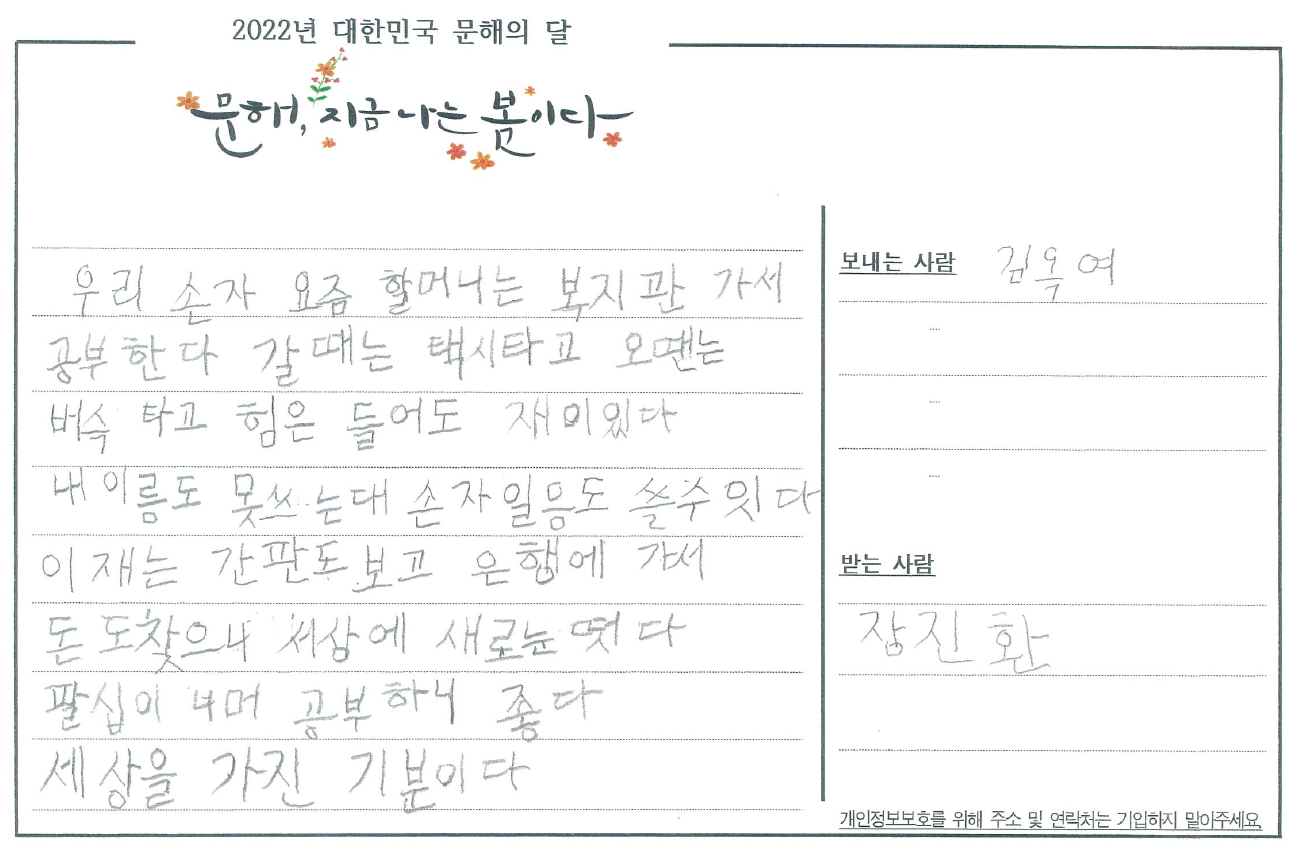 2022년 대한민국 문해의 달
문해, 지금 나는 봄이다
우리 손자 요즘 할머니는 복지관 가서
공부한다 갈때는 택시타고 오땐는
버슥 타고 힘은 들어도 재미있다
내 이름도 못쓰는대 손자일음도 쓸수 잇다
이재는 간판도 보고 은행에 가서
돈 도찾으니 세상에 새로눈 떳다
팔십이 너머 공부하니 좋다
세상을 가진 기분이다
보내는 사람 김옥여
받는 사람
장진환
개인정보보호를 위해 주소 및 연락처는 기입하지 말아주세요.